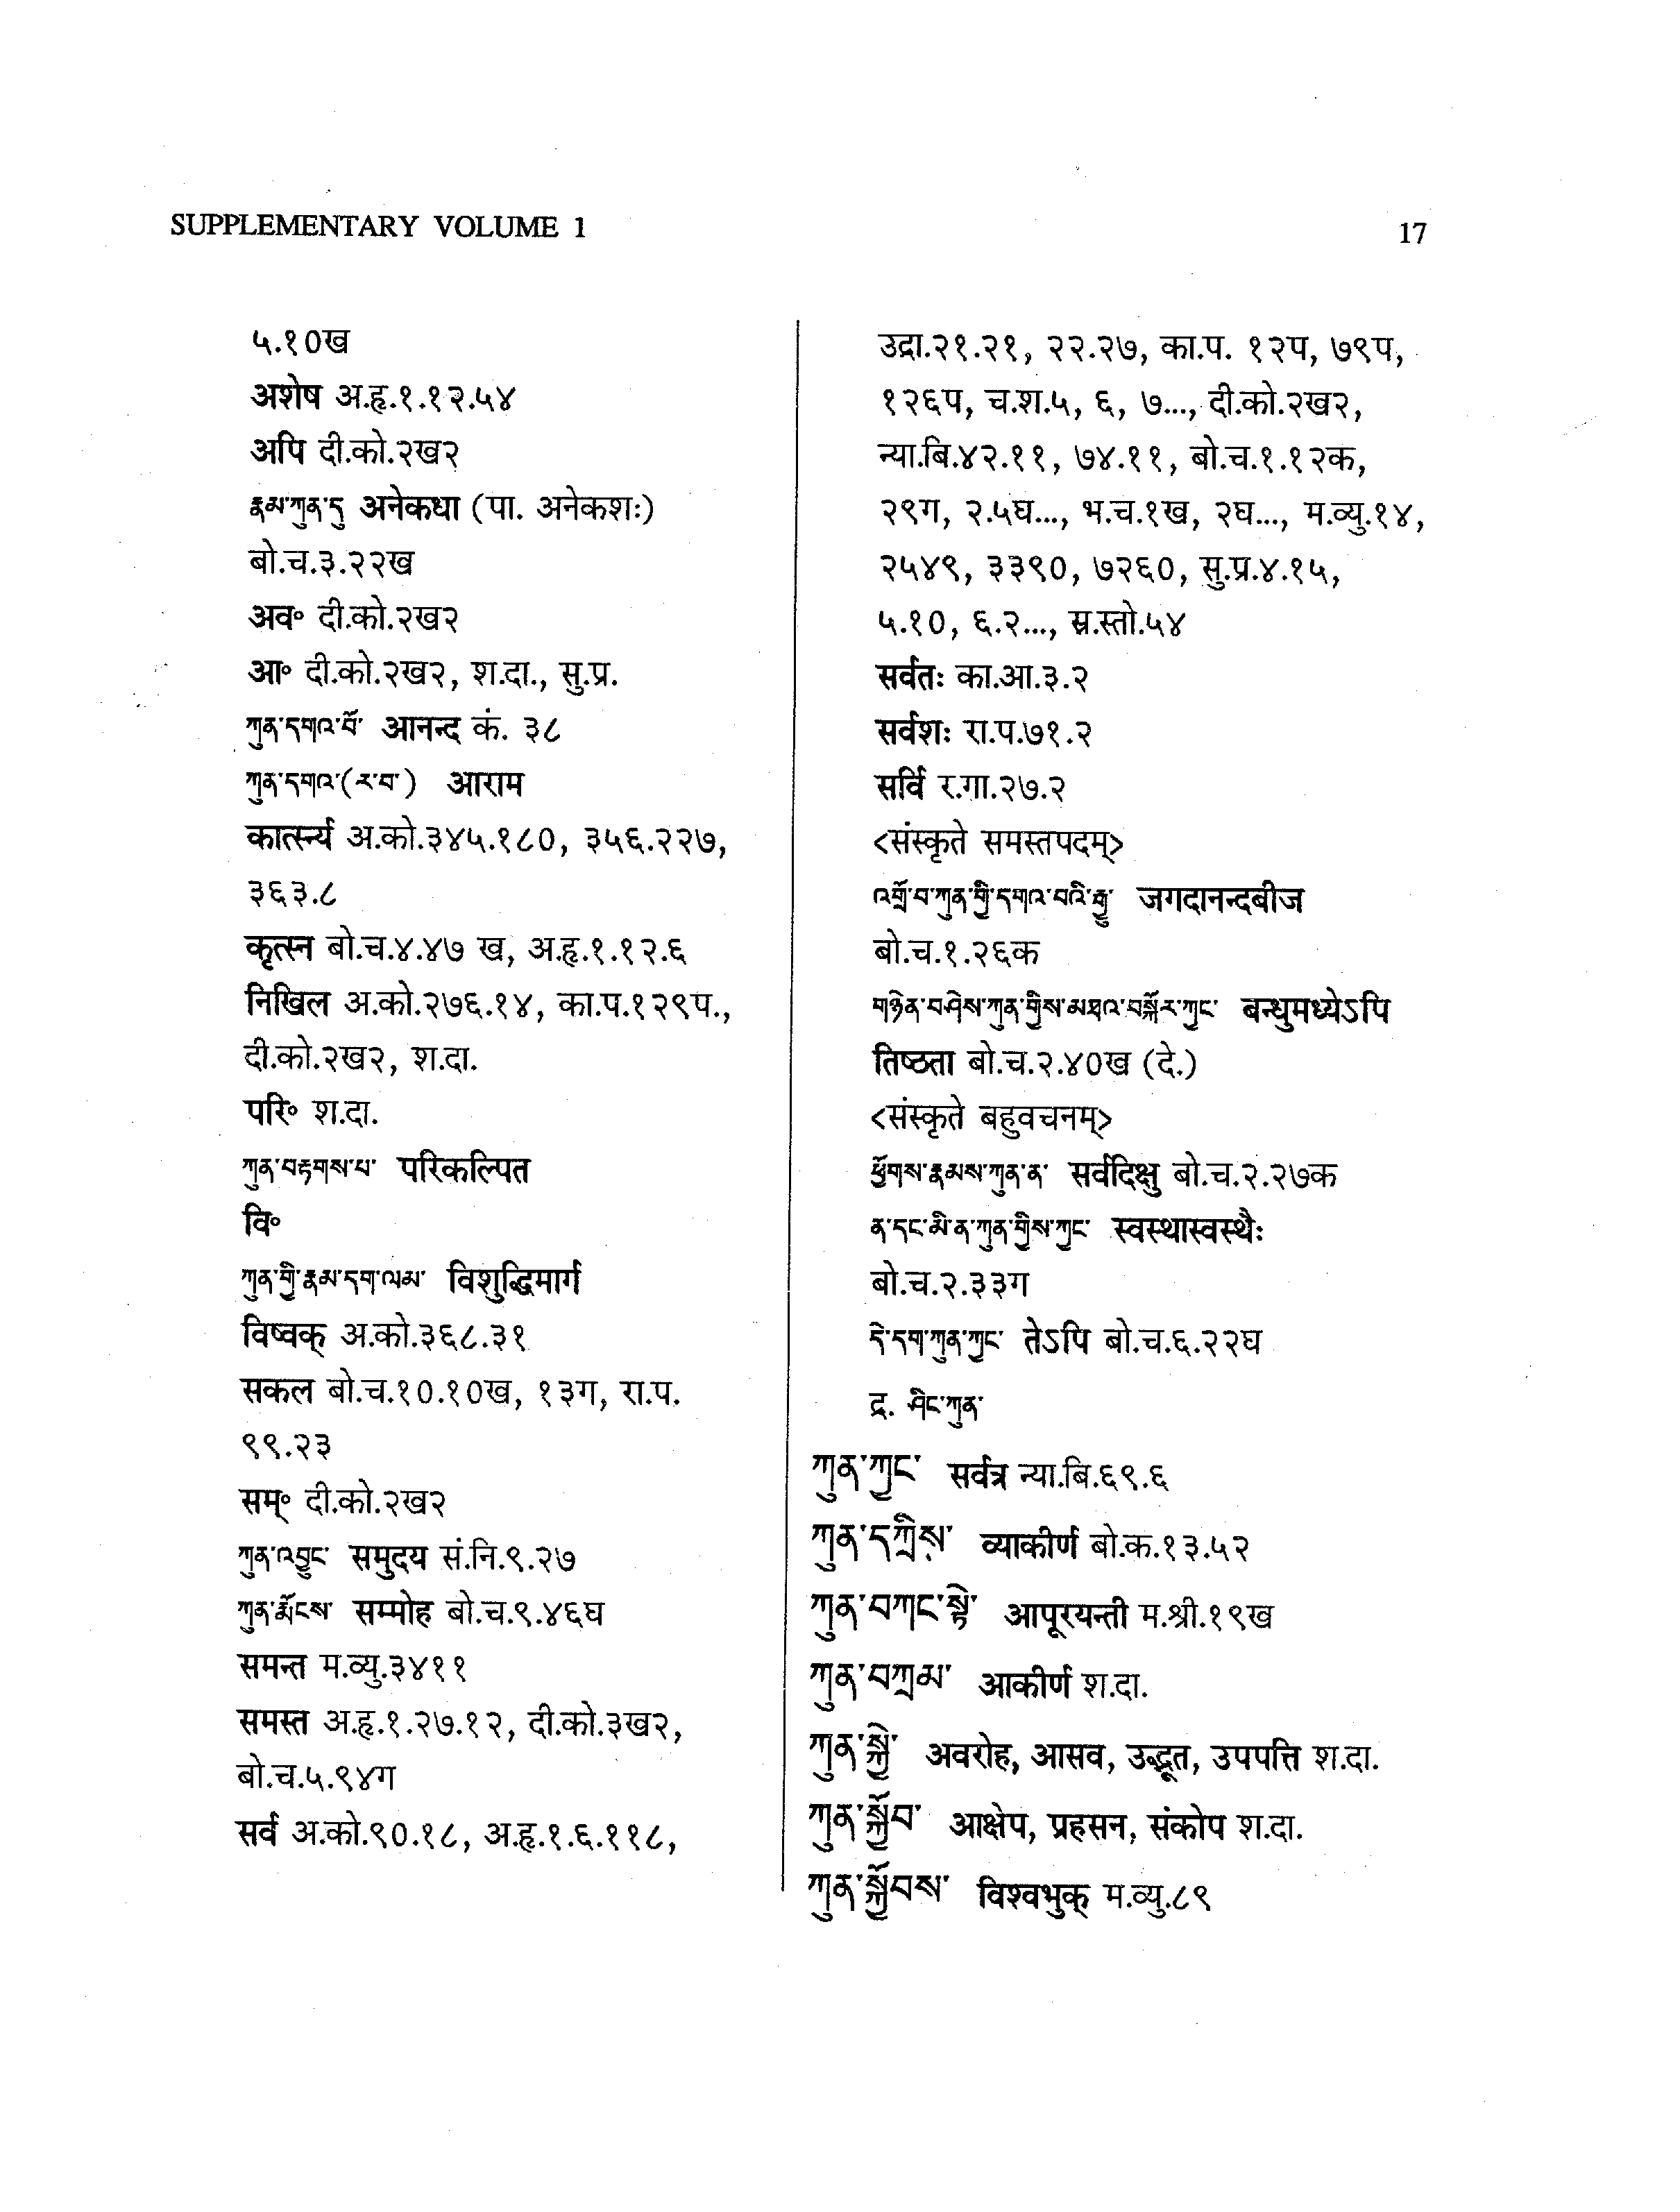 SUPPLEMENTARY VOLUME 1
17
५.१०ख
अशेष अ.हृ.१.१२.५४
अपि दी.को.२ख२
རྣམ་ཀུན་དུ अनेकधा (पा. अनेकशः)
बो.च.३.२२ख
अव० दी.को.२ख२
आ० दी.को.२ख२, श.दा., सु.प्र.
ཀུན་དགའ་བོ་ आनन्द कं. ३८
ཀུན་དགའ་(ར་བ་) आराम
कार्त्स्न्य अ.को.३४५.१८०, ३५६.२२७,
३६३.८
कृत्स्न बो.च.४.४७ ख, अ.हृ.१.१२.६
निखिल अ.को.२७६.१४, का.प.१२९प.,
दी.को.२ख२, श.दा.
परि० श.दा.
ཀུན་བརྟགས་པ་ परिकल्पित
वि०
ཀུན་གྱི་རྣམ་དག་ལམ་ विशुद्धिमार्ग
विष्वक् अ.को.३६८.३१
सकल बो.च.१०.१०ख, १३ग, रा.प.
९९.२३
सम्० दी.को.२ख२
ཀུན་འབྱུང་ समुदय सं.नि.९.२७
ཀུན་རྨོངས་ सम्मोह बो.च.९.४६घ
समन्त म.व्यु.३४११
समस्त अ.हृ.१.२७.१२, दी.को.३ख२,
बो.च.५.९४ग
सर्व अ.को.९०.१८, अ.हृ.१.६.११८,
उद्रा.२१.२१, २२.२७, का.प. १२प, ७९प,
१२६प, च.श.५, ६, ७..., दी.को.२ख२,
न्या.बि.४२.११, ७४.११, बो.च.१.१२क,
२९ग, २.५घ..., भ.च.१ख, २घ..., म.व्यु.१४,
२५४९, ३३९०, ७२६०, सु.प्र.४.१५,
५.१०, ६.२..., स्र.स्तो.५४
सर्वतः का.आ.३.२
सर्वशः रा.प.७१.२
सर्वि र.गा.२७.२
<संस्कृते समस्तपदम्>
འགྲོ་བ་ཀུན་གྱི་དགའ་བའི་རྒྱུ་ जगदानन्दबीज
बो.च.१.२६क
གཉེན་བཤེས་ཀུན་གྱིས་མཐའ་བསྐོར་ཀྱང་ बन्धुमध्येऽपि
तिष्ठता बो.च.२.४०ख (दे.)
<संस्कृते बहुवचनम्>
ཕྱོགས་རྣམས་ཀུན་ན་ सर्वदिक्षु बो.च.२.२७क
ན་དང་མི་ན་ཀུན་གྱིས་ཀྱང་ स्वस्थास्वस्थैः
बो.च.२.३३ग
དེ་དག་ཀུན་ཀྱང་ तेऽपि बो.च.६.२२घ
द्र. ཤིང་ཀུན་
ཀུན་ཀྱང་ सर्वत्र न्या.बि.६९.६
ཀུན་དཀྲིས་ व्याकीर्ण बो.क.१३.५२
ཀུན་བཀང་སྟེ་ आपूरयन्ती म.श्री.१९ख
ཀུན་བཀྲམ་ आकीर्ण श.दा.
ཀུན་སྐྱེ་ अवरोह, आसव, उद्भूत, उपपत्ति श.दा.
ཀུན་སྐྱོབ་ आक्षेप, प्रहसन, संकोप श.दा.
ཀུན་སྐྱོབས་ विश्वभुक् म.व्यु.८९